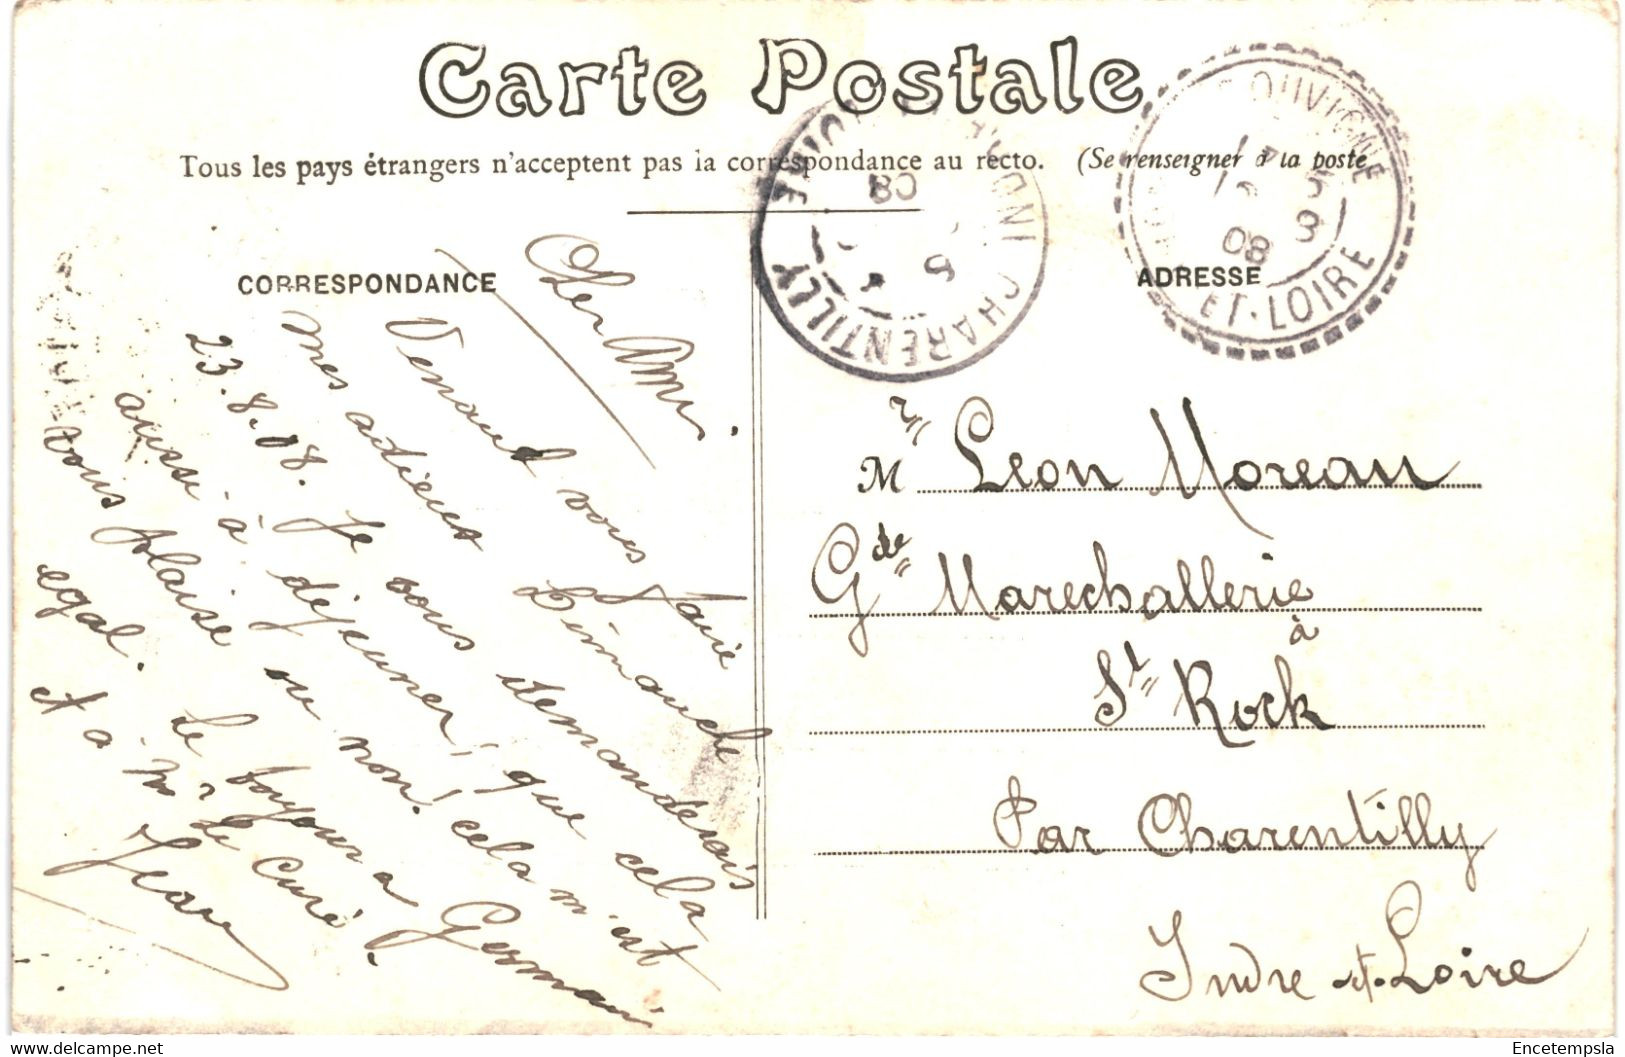 Carte Postale
Tous les pays étrangers n'acceptent pas la correspondance au recto. (Se renseigner à la poste
CORRESPONDANCE
Cher Ami
Venant vous faire
mes adieux Dimanche
23.8.08. Je vous demanderais
aussi à déjeuner, que cela
vous plaise ou non! cela m'est
egal. Le bonjour a Germain
et à Mr le Curé.
Jean
ADRESSE
M Leon Moreau
Gde Marechallerie
à
St Rock
Par Charentilly
Indre et Loire
CHARENTILLY
INDRE
LOIRE
08
ET-LOIRE
08
Encetempsla